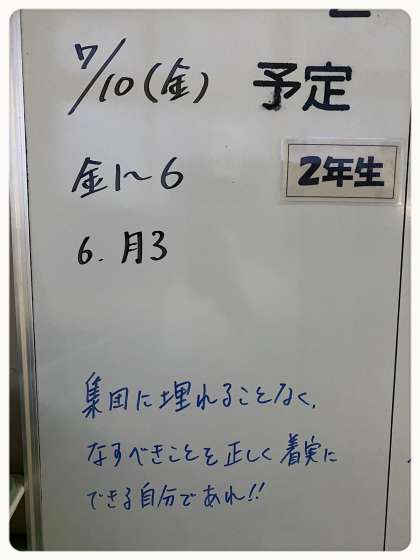 7/10(金) 予定
2年生
金1~6
6.月3
集団に埋れることなく、
なすべきことを正しく着実に
できる自分であれ!!